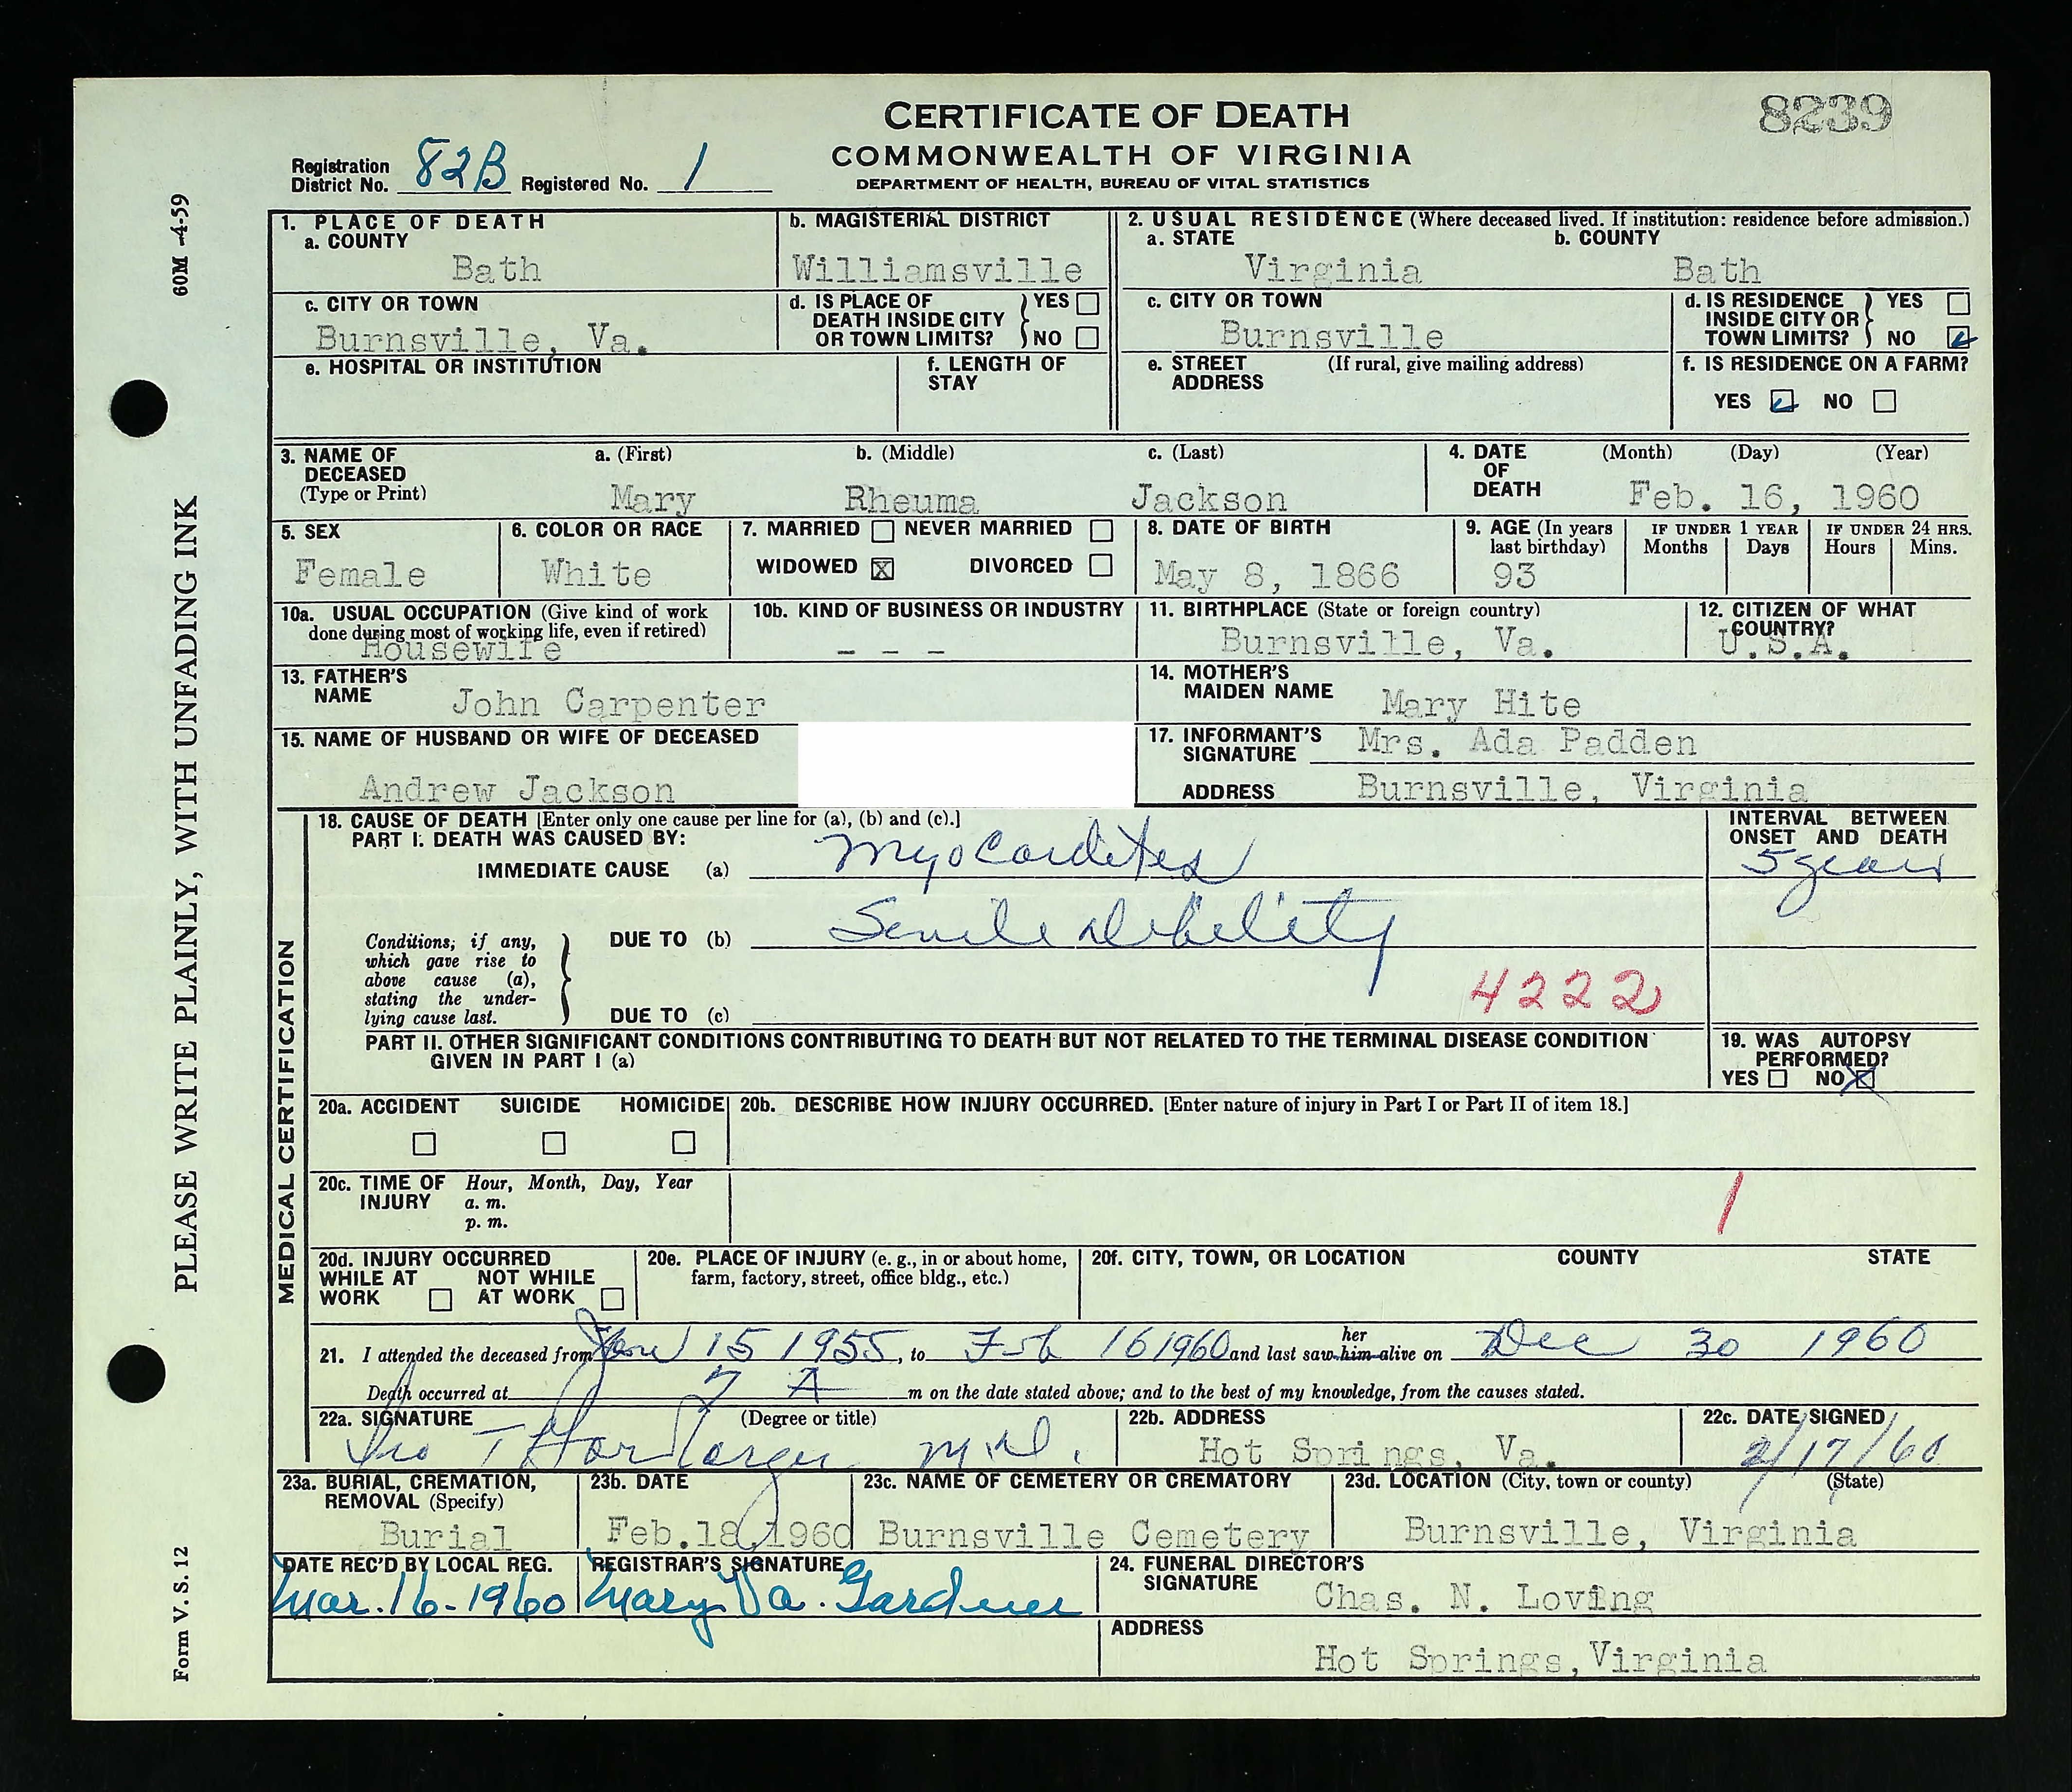 CERTIFICATE OF DEATH
8239
COMMONWEALTH OF VIRGINIA
DEPARTMENT OF HEALTH, BUREAU OF VITAL STATISTICS
Registration District No. 82B Registered No. 1
60M -4-59
PLEASE WRITE PLAINLY, WITH UNFADING INK
Form V. S. 12
1. PLACE OF DEATH
a. COUNTY
Bath
b. MAGISTERIAL DISTRICT
Williamsville
2. USUAL RESIDENCE (Where deceased lived. If institution: residence before admission.)
a. STATE
Virginia
b. COUNTY
Bath
c. CITY OR TOWN
Burnsville, Va.
d. IS PLACE OF DEATH INSIDE CITY OR TOWN LIMITS? YES NO
c. CITY OR TOWN
Burnsville
d. IS RESIDENCE INSIDE CITY OR TOWN LIMITS? YES NO
e. HOSPITAL OR INSTITUTION
f. LENGTH OF STAY
e. STREET ADDRESS (If rural, give mailing address)
f. IS RESIDENCE ON A FARM?
YES NO
3. NAME OF DECEASED (Type or Print)
a. (First)
Mary
b. (Middle)
Rheuma
c. (Last)
Jackson
4. DATE OF DEATH (Month) (Day) (Year)
Feb. 16, 1960
5. SEX
Female
6. COLOR OR RACE
White
7. MARRIED NEVER MARRIED
WIDOWED X DIVORCED
8. DATE OF BIRTH
May 8, 1866
9. AGE (In years last birthday)
93
IF UNDER 1 YEAR
Months Days
IF UNDER 24 HRS.
Hours Mins.
10a. USUAL OCCUPATION (Give kind of work done during most of working life, even if retired)
Housewife
10b. KIND OF BUSINESS OR INDUSTRY
- - -
11. BIRTHPLACE (State or foreign country)
Burnsville, Va.
12. CITIZEN OF WHAT COUNTRY?
U.S.A.
13. FATHER'S NAME John Carpenter
14. MOTHER'S MAIDEN NAME Mary Hite
15. NAME OF HUSBAND OR WIFE OF DECEASED
Andrew Jackson
17. INFORMANT'S SIGNATURE Mrs. Ada Padden
ADDRESS Burnsville, Virginia
MEDICAL CERTIFICATION
18. CAUSE OF DEATH [Enter only one cause per line for (a), (b) and (c).]
PART I. DEATH WAS CAUSED BY:
IMMEDIATE CAUSE (a) Myocarditis
INTERVAL BETWEEN ONSET AND DEATH
5 years
Conditions, if any, which gave rise to above cause (a), stating the underlying cause last.
DUE TO (b) Senile debility
4222
DUE TO (c)
PART II. OTHER SIGNIFICANT CONDITIONS CONTRIBUTING TO DEATH BUT NOT RELATED TO THE TERMINAL DISEASE CONDITION GIVEN IN PART I (a)
19. WAS AUTOPSY PERFORMED?
YES NO X
20a. ACCIDENT SUICIDE HOMICIDE
20b. DESCRIBE HOW INJURY OCCURRED. [Enter nature of injury in Part I or Part II of item 18.]
20c. TIME OF INJURY Hour, Month, Day, Year
a. m.
p. m.
1
20d. INJURY OCCURRED
WHILE AT WORK NOT WHILE AT WORK
20e. PLACE OF INJURY (e. g., in or about home, farm, factory, street, office bldg., etc.)
20f. CITY, TOWN, OR LOCATION COUNTY STATE
21. I attended the deceased from Jan 15 1955, to Feb 16 1960 and last saw her him alive on Dec 30 1960
Death occurred at 7 A m on the date stated above; and to the best of my knowledge, from the causes stated.
22a. SIGNATURE (Degree or title)
M.D.
22b. ADDRESS
Hot Springs, Va.
22c. DATE SIGNED
2/17/60
23a. BURIAL, CREMATION, REMOVAL (Specify)
Burial
23b. DATE
Feb.18,1960
23c. NAME OF CEMETERY OR CREMATORY
Burnsville Cemetery
23d. LOCATION (City, town or county) (State)
Burnsville, Virginia
DATE REC'D BY LOCAL REG.
Mar. 16-1960
REGISTRAR'S SIGNATURE
Mary Va. Gardner
24. FUNERAL DIRECTOR'S SIGNATURE Chas. N. Loving
ADDRESS
Hot Springs, Virginia